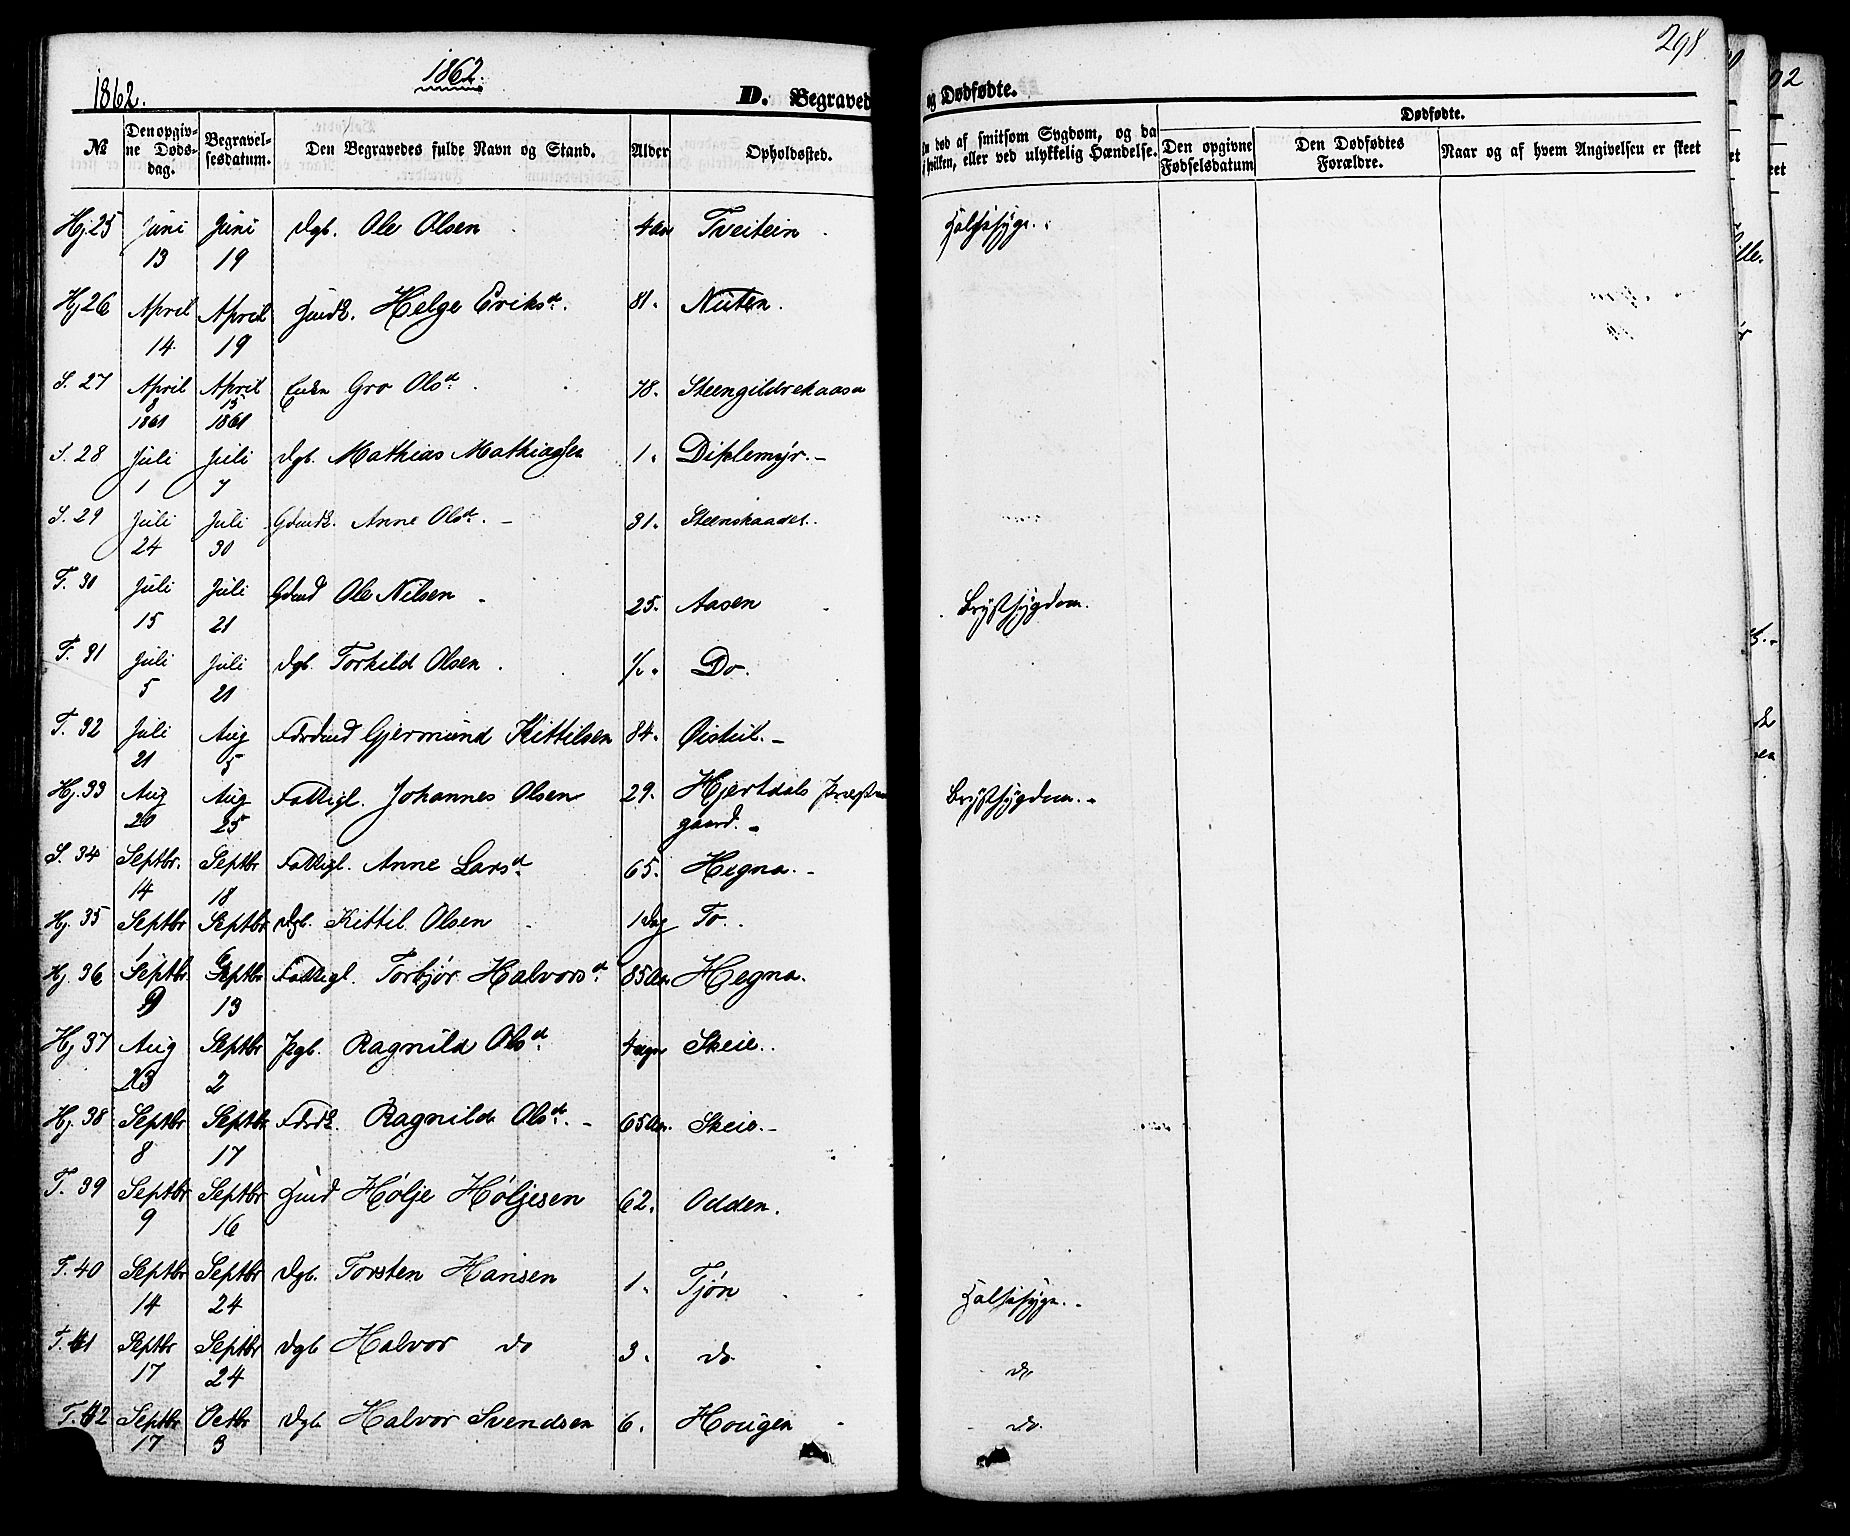 1862.
1862.
D. Begravede
og Dødfødte.
298.
№
Den opgivne Dødsdag.
Begravelsesdatum.
Den Begravedes fulde Navn og Stand.
Alder
Opholdssted.
død af smitsom Sygdom, og da
hvilken, eller ved ulykkelig Hændelse.
Dødfødte.
Den opgivne Fødselsdatum
Den Dødfødtes Forældre.
Naar og af hvem Angivelsen er skeet
Hj. 25 Juni 13 Juni 19 dgb. Ole Olsen 4 Tveitein Halssyge.
Hj. 26 April 14 April 19 Helge Eriksd. 81. Nuten.
S. 27 April 8 1861 April 15 1861 Enken Gro Olsd. 78. Steengildrekaasa
S. 28 Juli 1 Juli 7 dgb. Mathias Mathiassen 1. Diplemyr.
S. 29 Juli 24 Juli 30 Gdmdk. Anne Olsd. 31. Steenskaadet.
T. 30 Juli 15 Juli 21 Gdmd Ole Nilsen 25. Aasen Brystsygdom.
T. 31 Juli 5 Juli 21 dgb. Torkild Olsen Do.
T. 32 Juli 21 Aug 5 Fdrdmd Gjermund Kittilsen 84. Øistul.
Hj. 33 Aug 20 Aug 25 Fattigl. Johannes Olsen 29. Hjertdals Præstegaard. Brystsygdom.
S. 34 Septbr. 14 Septbr 18 Fattigl. Anne Larsd. 65. Hegna.
Hj. 35 Septbr 1 Septbr dgb. Kittil Olsen 1 Dag To.
Hj. 36 Septbr 9 Septbr 13 Fattigl. Torbjør Halvorsd. 85 Aar. Hegna.
Hj. 37 Aug 23 Septbr 2 Pgb. Ragnild Olsd. 4 Skeie.
Hj. 38 Septbr 8 Septbr 17 Fdrdk. Ragnild Olsd. 65 Aar. Skeie.
T. 39 Septbr 9 Septbr 16 Hmd Holje Höljesen 62. Odden.
T. 40 Septbr 14 Septbr 24 dgb. Torsten Hansen 1. Tjøn Halssyge.
T. 41 Septbr 17 Septbr 24 dgb Halvor do 3. do do
T. 42 Septbr 17 Octbr 3 dgb Halvor Svendsen 6. Hougen do.